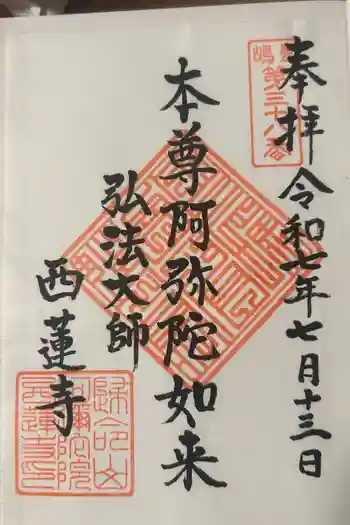 奉拝 令和七年七月十三日
本尊阿弥陀如来
弘法大師
西蓮寺
第三十八番